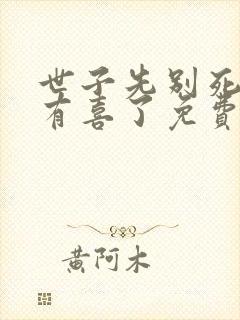 世子先别死
有喜了免费
黄阿木